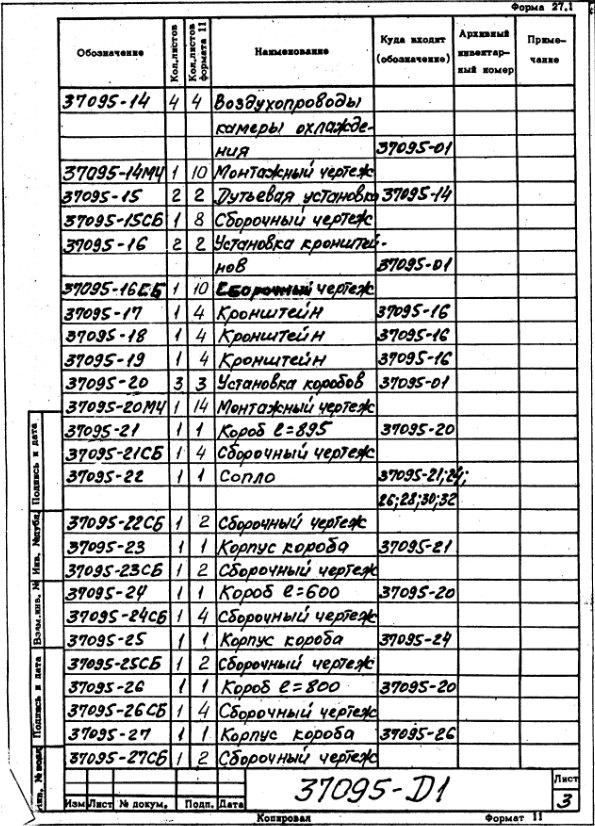 Форма 27.1
Обозначение Кол.листов Кол.листов формата 11 Наименование Куда входит (обозначение) Архивный инвентар-ный номер Приме-чание
37095-14 4 4 Воздухопроводы
камеры охлажде-
ния 37095-01
37095-14МЧ 1 10 Монтажный чертеж
37095-15 2 2 Дутьевая установка 37095-14
37095-15СБ 1 8 Сборочный чертеж
37095-16 2 2 Установка кронштей-
нов 37095-01
37095-16СБ 1 10 Сборочный чертеж
37095-17 1 4 Кронштейн 37095-16
37095-18 1 4 Кронштейн 37095-16
37095-19 1 4 Кронштейн 37095-16
37095-20 3 3 Установка коробов 37095-01
37095-20МЧ 1 14 Монтажный чертеж
37095-21 1 1 Короб ℓ=895 37095-20
37095-21СБ 1 4 Сборочный чертеж
37095-22 1 1 Сопло 37095-21;24;
26;28;30;32
37095-22СБ 1 2 Сборочный чертеж
37095-23 1 1 Корпус короба 37095-21
37095-23СБ 1 2 Сборочный чертеж
37095-24 1 1 Короб ℓ=600 37095-20
37095-24СБ 1 4 Сборочный чертеж
37095-25 1 1 Корпус короба 37095-24
37095-25СБ 1 2 Сборочный чертеж
37095-26 1 1 Короб ℓ=800 37095-20
37095-26СБ 1 4 Сборочный чертеж
37095-27 1 1 Корпус короба 37095-26
37095-27СБ 1 2 Сборочный чертеж
Подпись и дата
Инв. №дубл.
Взам.инв. №
Подпись и дата
Инв. № подл.
Изм Лист № докум. Подп. Дата
37095-D1
Лист
3
Копировал
Формат 11